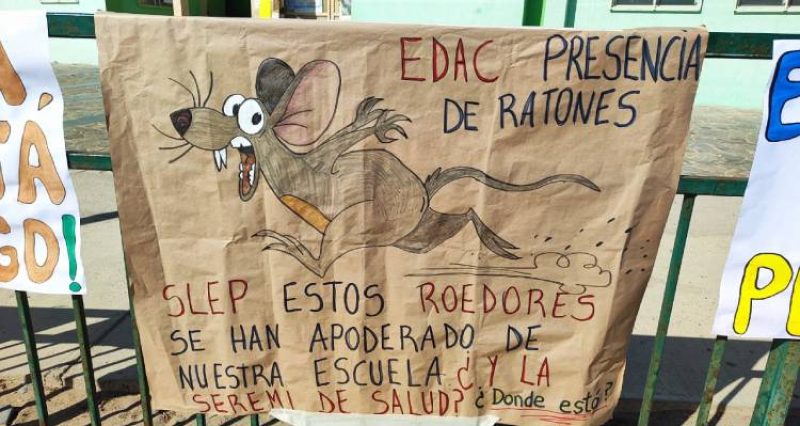 A
TÁ
GO!
EDAC PRESENCIA
DE RATONES
SLEP ESTOS ROEDORES
SE HAN APODERADO DE
NUESTRA ESCUELA ¿Y LA
SEREMI DE SALUD? ¿Donde está?
E
P